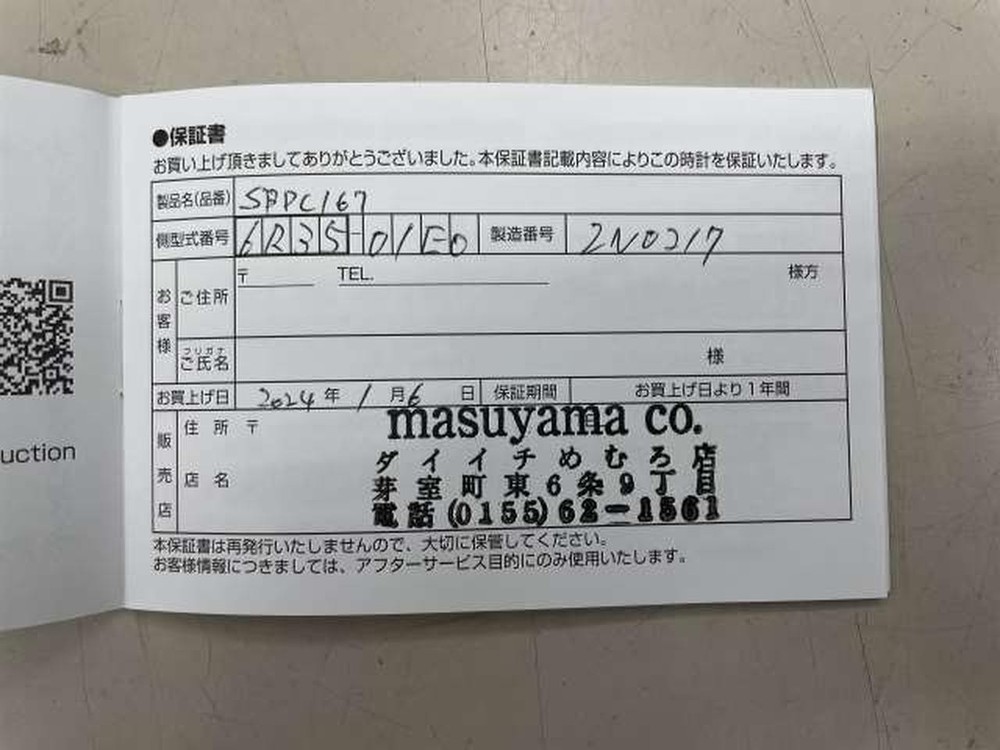 ●保証書
お買い上げ頂きましてありがとうございました。本保証書記載内容によりこの時計を保証いたします。
製品名(品番) SBDC167
側型式番号 6R35-01E0 製造番号 2N0217
お客様
ご住所 〒 TEL. 様方
フリガナ
ご氏名 様
お買上げ日 2024年1月6日 保証期間 お買上げ日より1年間
販売店
住所 〒
店名
masuyama co.
ダイイチめむろ店
芽室町東6条9丁目
電話(0155)62-1561
本保証書は再発行いたしませんので、大切に保管してください。
お客様情報につきましては、アフターサービス目的にのみ使用いたします。
uction